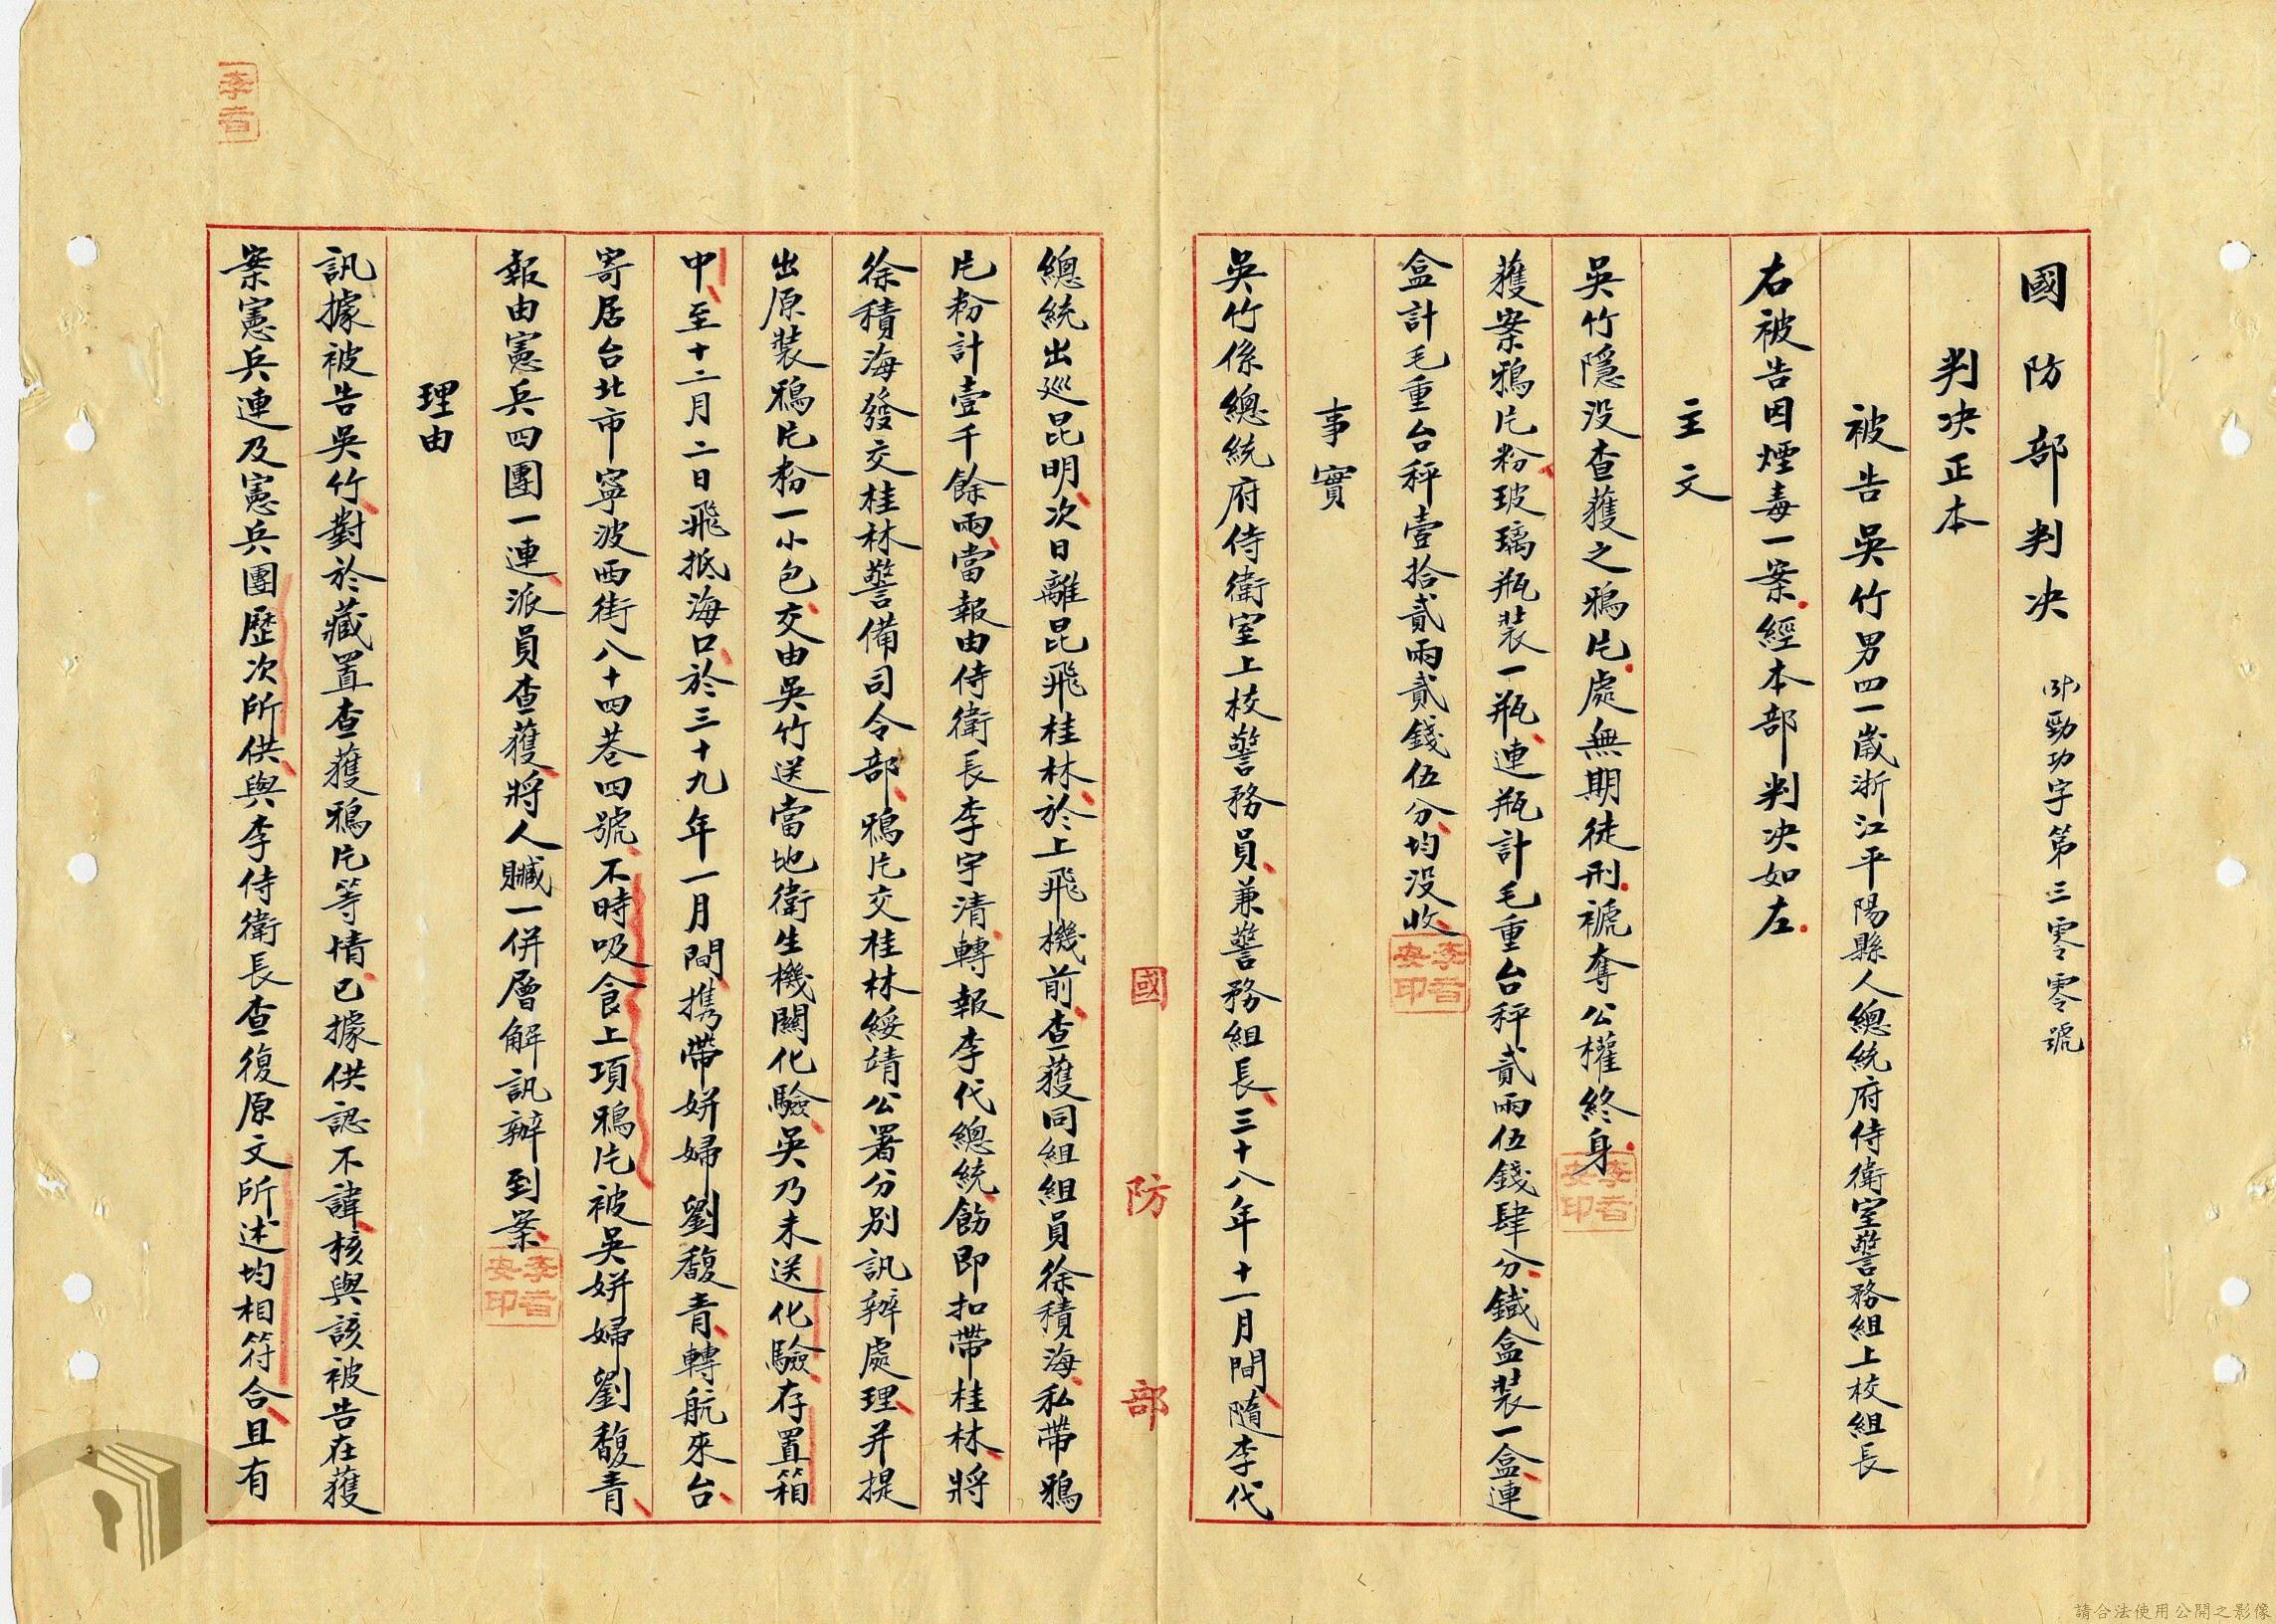 國防部判決 勁功字第三零零號
判決正本
被告吳竹男四一歲浙江平陽縣人總統府侍衛室警務組上校組長
右被告因煙毒一案經本部判決如左
主文
吳竹隱沒查獲之鴉片處無期徒刑褫奪公權終身
獲案鴉片粉玻璃瓶裝一瓶連瓶計毛重台秤貳兩伍錢肆分鐵盒裝一盒連
盒計毛重台秤壹拾貳兩貳錢伍分均沒收
事實
吳竹係總統府侍衛室上校警務員兼警務組長三十八年十一月間隨李代
總統出巡昆明次日離昆飛桂林於上飛機前查獲同組組員徐積海私帶鴉
片粉計壹千餘兩當報由侍衛長李宇清轉報李代總統飭即扣帶桂林將
徐積海發交桂林警備司令部鴉片交桂林綏靖公署分別訊辦處理并提
出原裝鴉片粉一小包交由吳竹送當地衛生機關化驗吳乃未送化驗存置箱
中至十二月二日飛抵海口於三十九年一月間攜帶姘婦劉馥青轉航來台
寄居台北市寧波西街八十四巷四號不時吸食上項鴉片被吳姘婦劉馥青
報由憲兵四團一連派員查獲將人贓一併層解訊辦到案
理由
訊據被告吳竹對於藏置查獲鴉片等情已據供認不諱核與該被告在獲
案憲兵連及憲兵團歷次所供與李侍衛長查復原文所述均相符合且有
國防部
請合法使用公開之影像